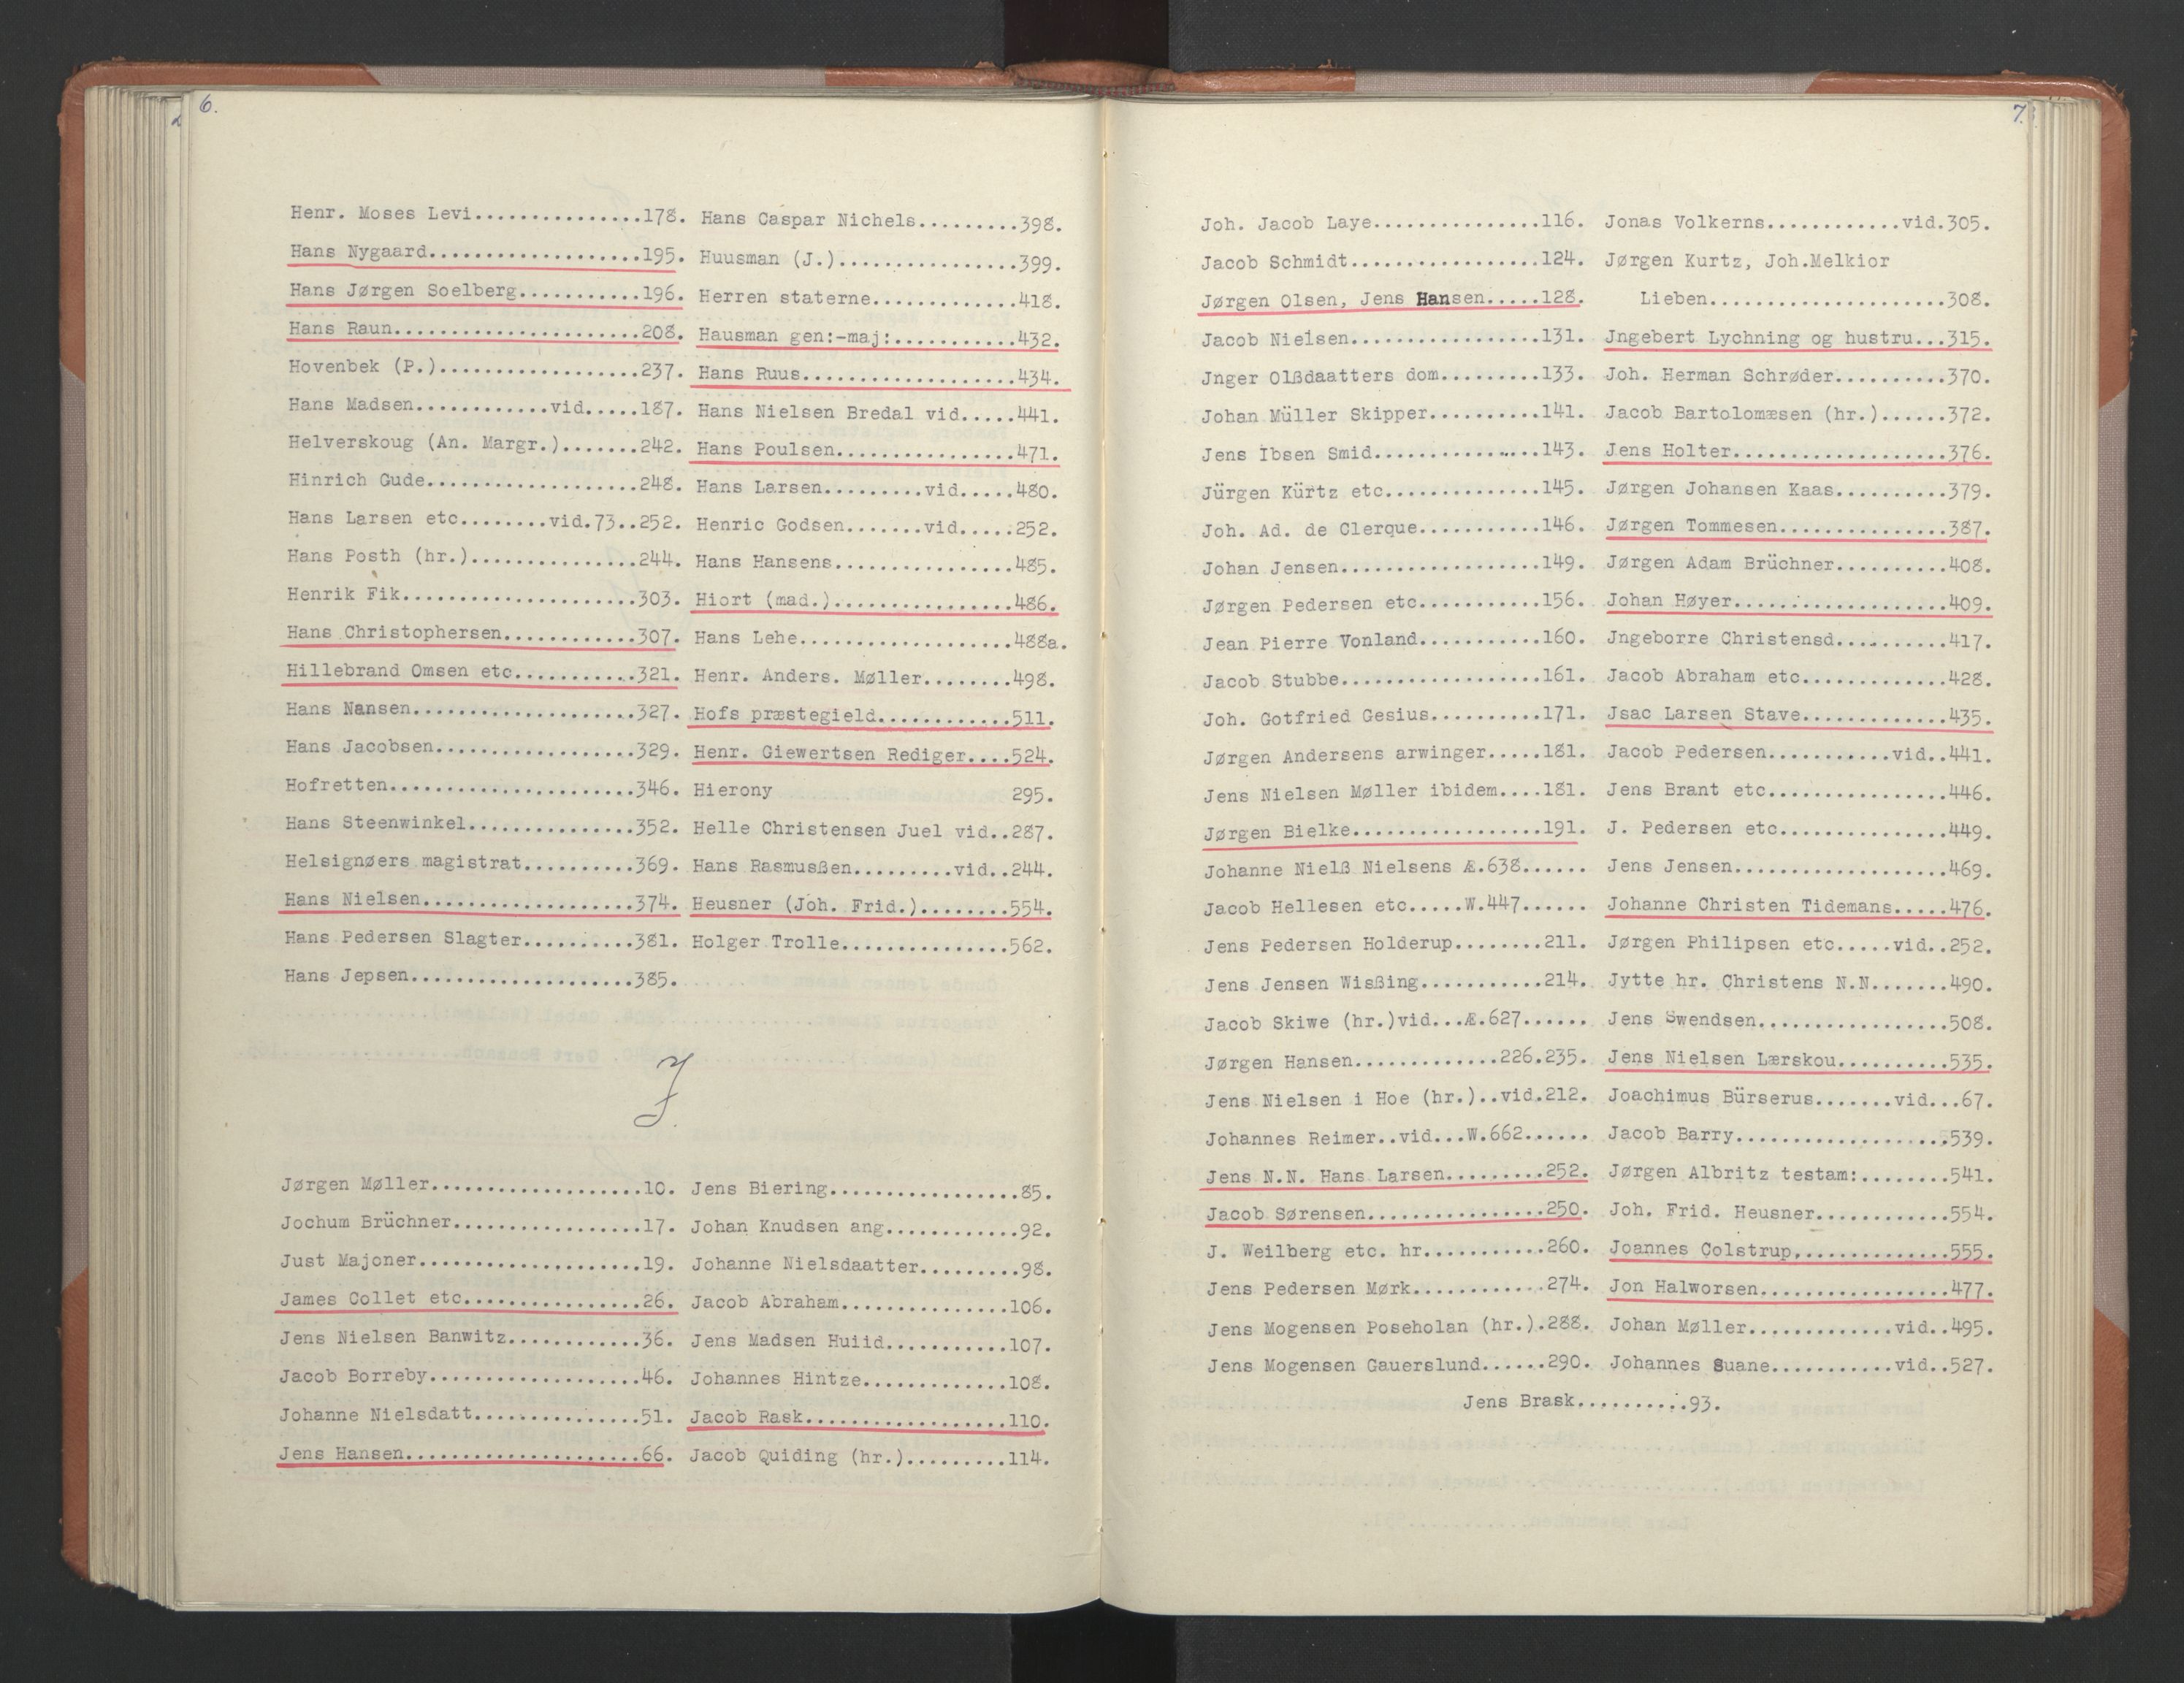 6.
Henr. Moses Levi...............178.
Hans Nygaard...................195.
Hans Jørgen Soelberg...........196.
Hans Raun......................208.
Hovenbek (P.)..................237.
Hans Madsen............vid.....187.
Helverskoug (An. Margr.).......242.
Hinrich Gude...................248.
Hans Larsen etc........vid.73..252.
Hans Posth (hr.)...............244.
Henrik Fik.....................303.
Hans Christophersen............307.
Hillebrand Omsen etc...........321.
Hans Nansen....................327.
Hans Jacobsen..................329.
Hofretten......................346.
Hans Steenwinkel...............352.
Helsignøers magistrat..........369.
Hans Nielsen...................374.
Hans Pedersen Slagter..........381.
Hans Jepsen....................385.
Hans Caspar Nichels.........398.
Huusman (J.)................399.
Herren staterne.............418.
Hausman gen:-maj:...........432.
Hans Ruus...................434.
Hans Nielsen Bredal vid.....441.
Hans Poulsen................471.
Hans Larsen.........vid.....480.
Henric Godsen.......vid.....252.
Hans Hansens................485.
Hiort (mad.)................486.
Hans Lehe...................488a.
Henr. Anders. Møller........498.
Hofs præstegield............511.
Henr. Giewertsen Rediger....524.
Hierony 295.
Helle Christensen Juel vid..287.
Hans Rasmusßen.........vid..244.
Heusner (Joh. Frid.)........554.
Holger Trolle...............562.
J.
Jørgen Møller...................10.
Jochum Brüchner.................17.
Just Majoner....................19.
James Collet etc................26.
Jens Nielsen Banwitz............36.
Jacob Borreby...................46.
Johanne Nielsdatt...............51.
Jens Hansen.....................66.
Jens Biering.................85.
Johan Knudsen ang............92.
Johanne Nielsdaatter.........98.
Jacob Abraham...............106.
Jens Madsen Huiid...........107.
Johannes Hintze.............108.
Jacob Rask..................110.
Jacob Quiding (hr.).........114.
7.
Joh. Jacob Laye...............116.
Jacob Schmidt.................124.
Jørgen Olsen, Jens Hansen.....128.
Jacob Nielsen.................131.
Jnger Olßdaatters dom.........133.
Johan Müller Skipper..........141.
Jens Ibsen Smid...............143.
Jürgen Kürtz etc..............145.
Joh. Ad. de Clerque...........146.
Johan Jensen..................149.
Jørgen Pedersen etc...........156.
Jean Pierre Vonland...........160.
Jacob Stubbe..................161.
Joh. Gotfried Gesius..........171.
Jørgen Andersens arwinger.....181.
Jens Nielsen Møller ibidem....181.
Jørgen Bielke.................191.
Johanne Nielß Nielsens Æ.638......
Jacob Hellesen etc.....W.447......
Jens Pedersen Holderup........211.
Jens Jensen Wißing...........214.
Jacob Skiwe (hr.)vid...Æ.627......
Jørgen Hansen.............226.235.
Jens Nielsen i Hoe (hr.)..vid.212.
Johannes Reimer..vid...W.662......
Jens N.N. Hans Larsen.........252.
Jacob Sørensen................250.
J. Weilberg etc. hr...........260.
Jens Pedersen Mørk............274.
Jens Mogensen Poseholan (hr.).288.
Jens Mogensen Gauerslund......290.
Jonas Volkerns............vid.305.
Jørgen Kurtz, Joh.Melkior
Lieben......................308.
Jngebert Lychning og hustru...315.
Joh. Herman Schrøder..........370.
Jacob Bartolomæsen (hr.)......372.
Jens Holter...................376.
Jørgen Johansen Kaas..........379.
Jørgen Tommesen...............387.
Jørgen Adam Brüchner..........408.
Johan Høyer...................409.
Jngeborre Christensd..........417.
Jacob Abraham etc.............428.
Jsac Larsen Stave.............435.
Jacob Pedersen...........vid..441.
Jens Brant etc................446.
J. Pedersen etc...............449.
Jens Jensen...................469.
Johanne Christen Tidemans.....476.
Jørgen Philipsen etc.....vid..252.
Jytte hr. Christens N.N.......490.
Jens Swendsen.................508.
Jens Nielsen Lærskou..........535.
Joachimus Bürserus.......vid...67.
Jacob Barry...................539.
Jørgen Albritz testam:........541.
Joh. Frid. Heusner............554.
Joannes Colstrup..............555.
Jon Halworsen.................477.
Johan Møller.............vid..495.
Johannes Suane...........vid..527.
Jens Brask..........93.